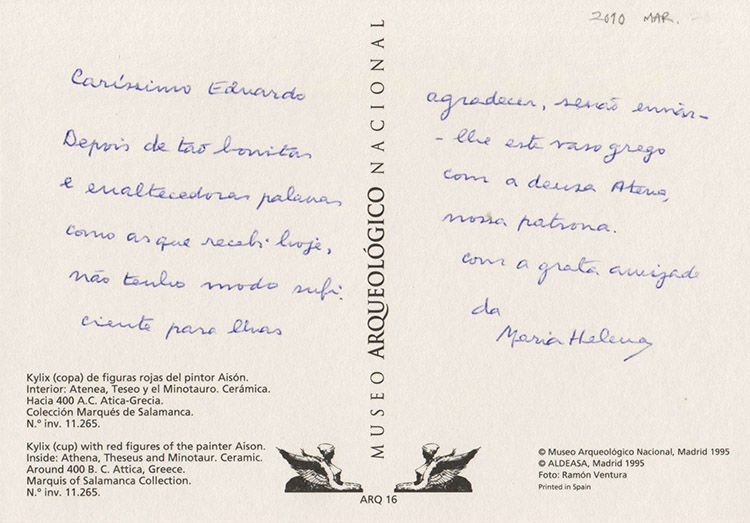 2010 MAR.
Caríssimo Eduardo
Depois de tão bonitas
e enaltecedoras palavras
como as que recebi hoje,
não tenho modo sufi-
ciente para lhas
agradecer, senão enviar-
- lhe este vaso grego
com a deusa Atena,
nossa patrona.
com a grata amizade
da
Maria Helena
MUSEO ARQUEOLÓGICO NACIONAL
Kylix (copa) de figuras rojas del pintor Aisón.
Interior: Atenea, Teseo y el Minotauro. Cerámica.
Hacia 400 A.C. Atica-Grecia.
Colección Marqués de Salamanca.
N.º inv. 11.265.
Kylix (cup) with red figures of the painter Aison.
Inside: Athena, Theseus and Minotaur. Ceramic.
Around 400 B. C. Attica, Greece.
Marquis of Salamanca Collection.
N.º inv. 11.265.
ARQ 16
© Museo Arqueológico Nacional, Madrid 1995
© ALDEASA, Madrid 1995
Foto: Ramón Ventura
Printed in Spain